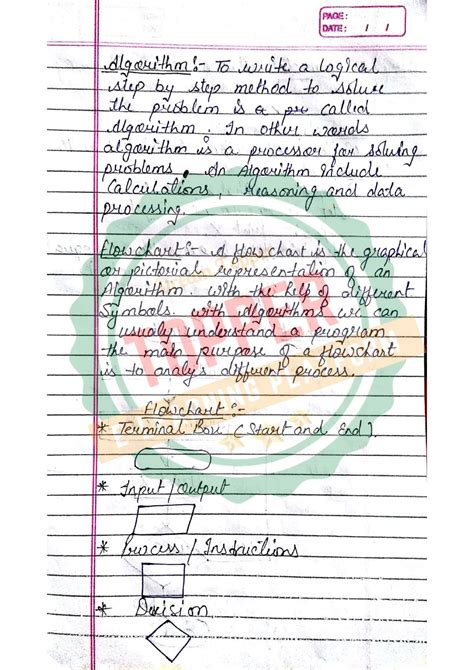 PAGE:
DATE: / /
Algorithm:- To write a logical
step by step method to solve
the problem is a called
Algorithm. In other words
algorithm is a processor for solving
problems. An Algorithm Include
Calculations, reasoning and data
processing.
flowchart:- A flowchart is the graphical
or pictorial representation of an
Algorithm. with the help of different
Symbols. with Algorithms we can
usually understand a program
the main purpose of a flowchart
is to analys different process.
flowchart:-
* Terminal Box (Start and End).
* Input/Output
* Process / Instructions
* Decision
TOPPER